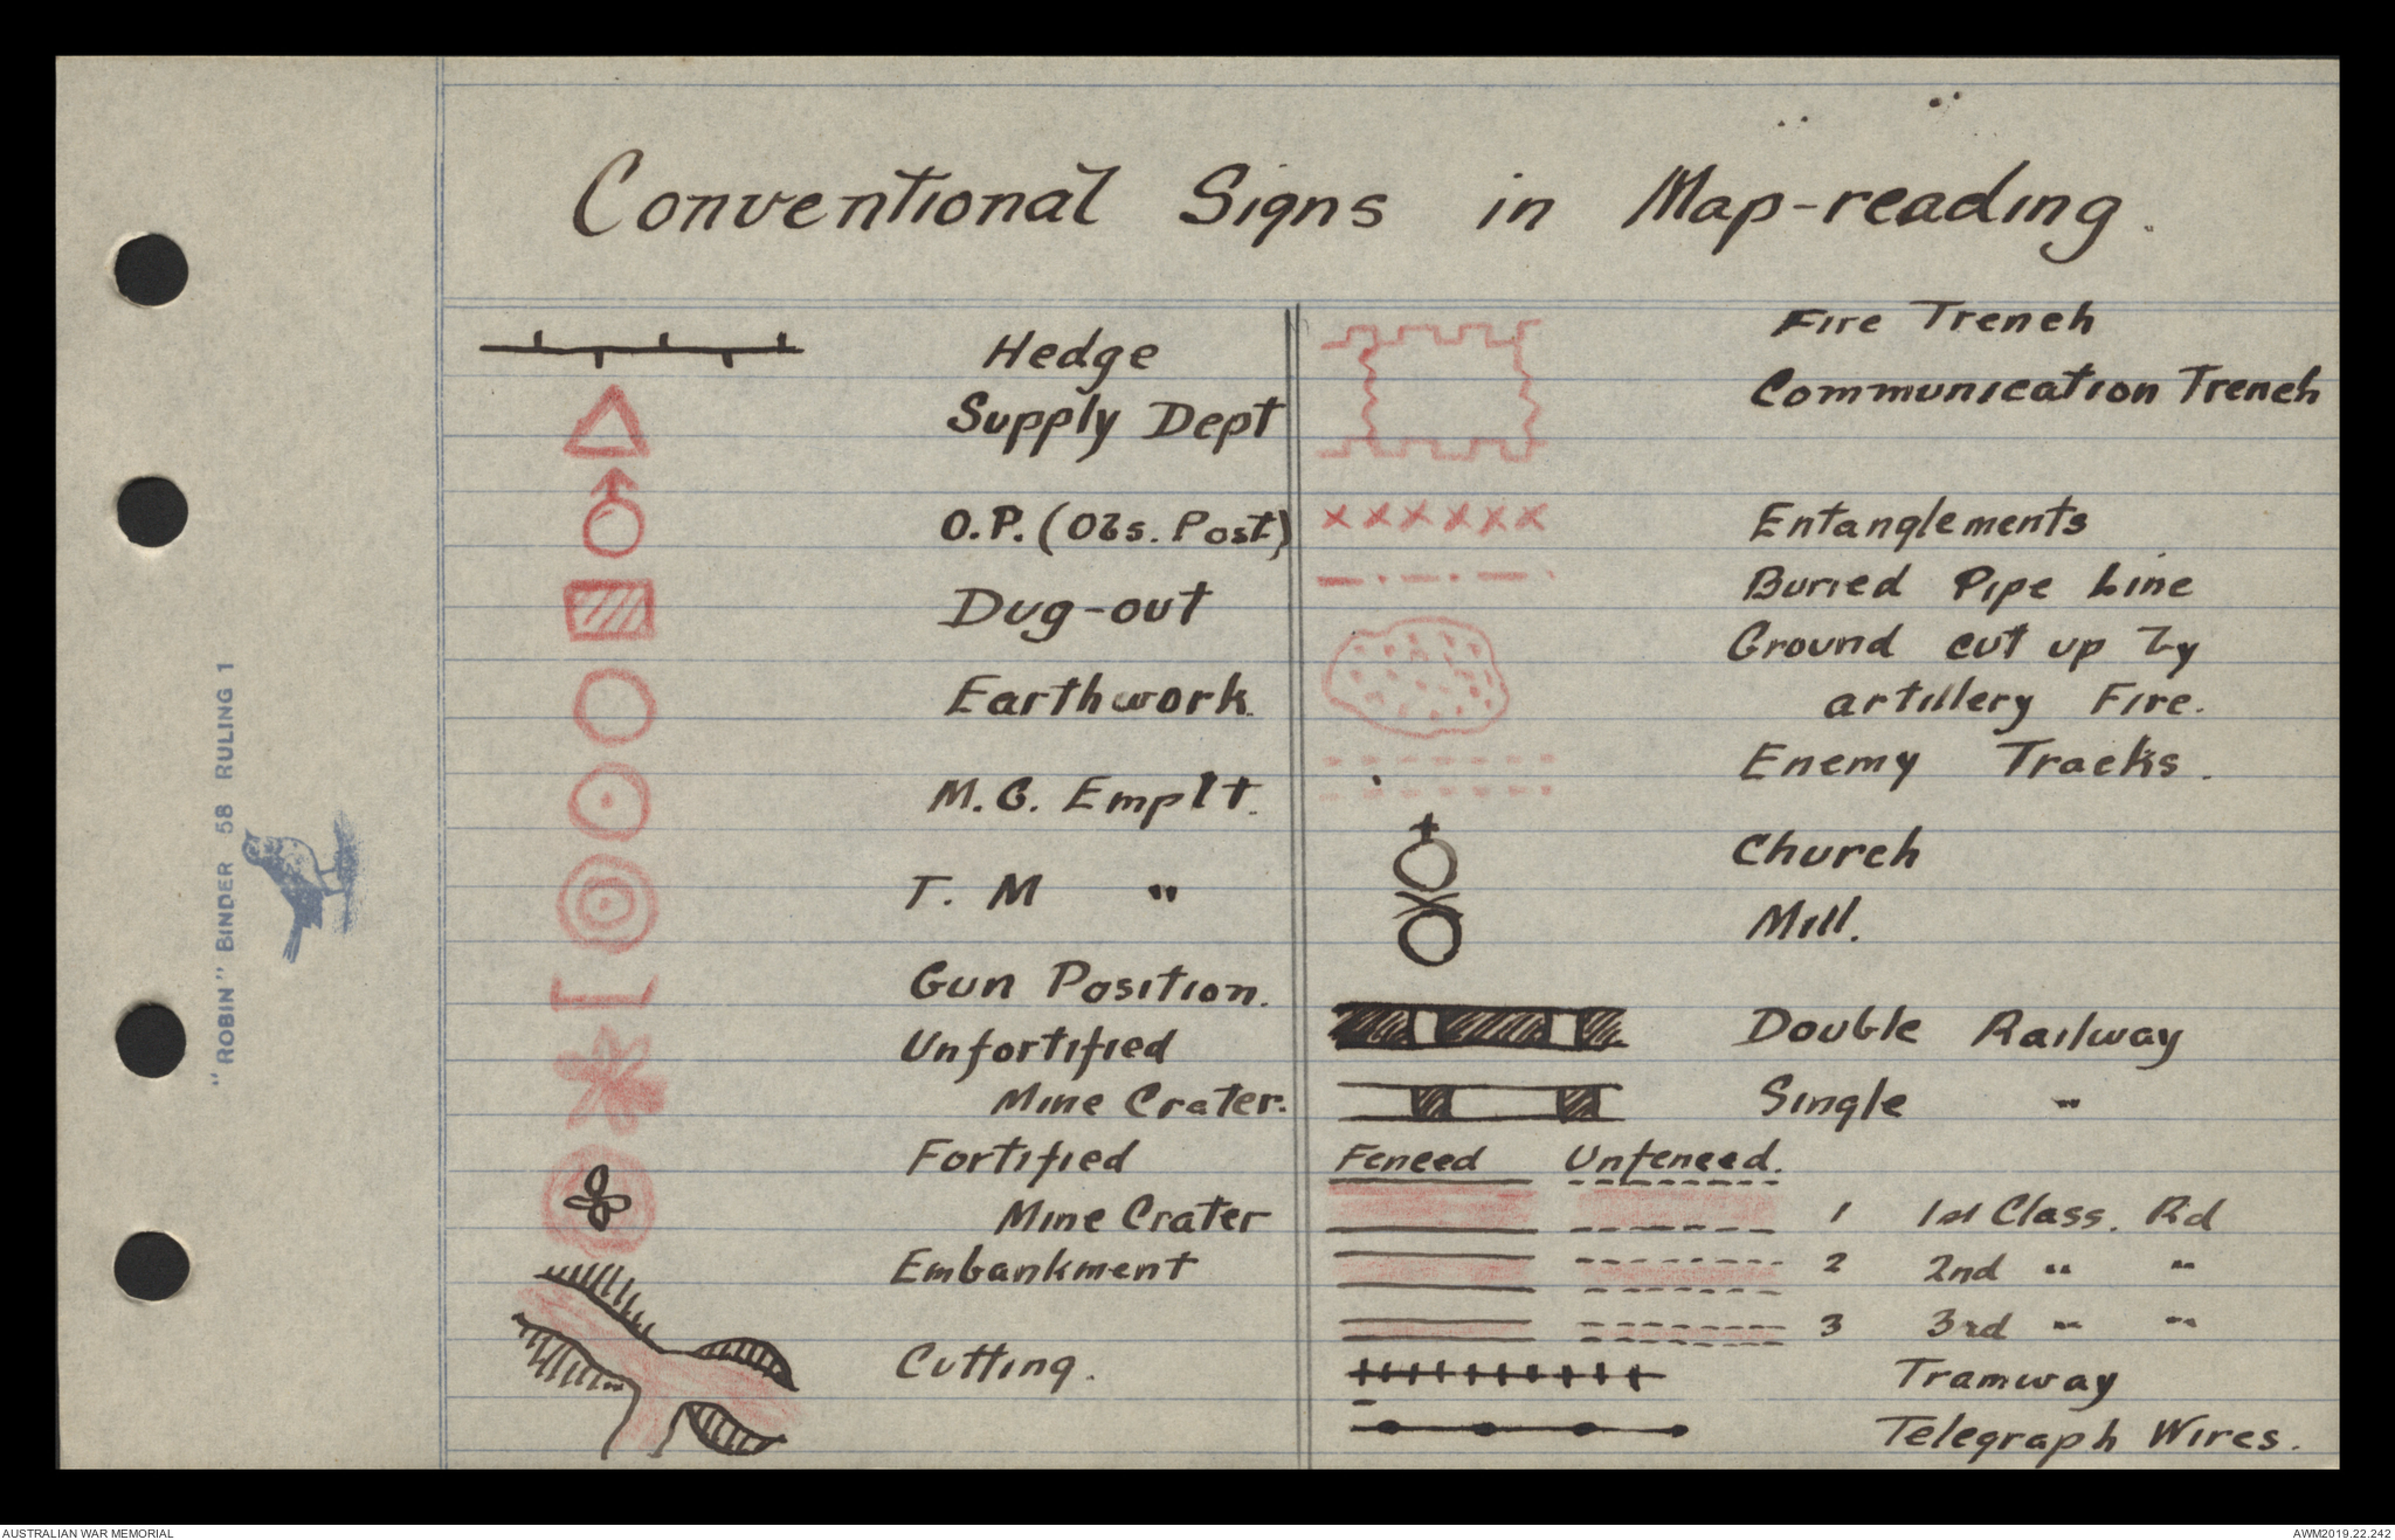 Conventional Signs in Map-reading.
Hedge
Supply Dept
O.P. (Obs. Post)
Dug-out
Earthwork.
M.G. Emplt.
T. M "
Gun Position.
Unfortified
Mine Crater.
Fortified
Mine Crater
Embankment
Cutting.
Fire Trench
Communication Trench
Entanglements
Buried Pipe Line
Ground cut up by
artillery Fire.
Enemy Tracks.
Church
Mill.
Double Railway
Single "
Fenced Unfenced.
1 1st Class. Rd
2 2nd " "
3 3rd " "
Tramway
Telegraph Wires.
"ROBIN" BINDER 58 RULING 1
AUSTRALIAN WAR MEMORIAL
AWM2019.22.242